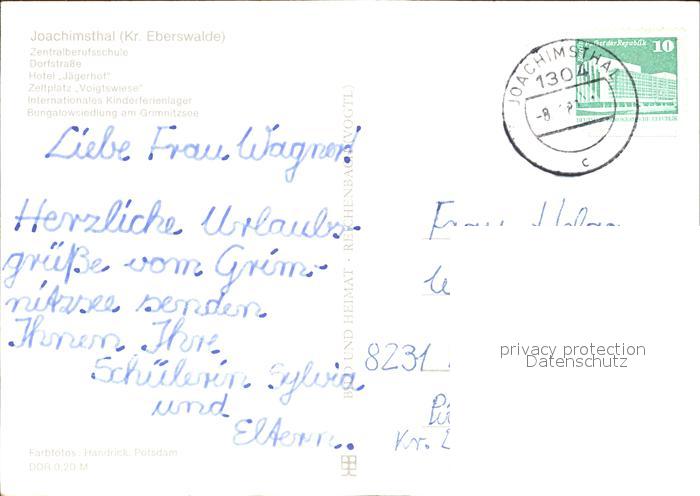 Joachimsthal (Kr. Eberswalde)
Zentralberufsschule
Dorfstraße
Hotel „Jägerhof"
Zeltplatz „Voigtswiese"
Internationales Kinderferienlager
Bungalowsiedlung am Grimnitzsee
JOACHIMSTHAL
1304
-8.
c
Palast der Republik 10
Liebe Frau Wagner!
Herzliche Urlaubs-
grüße vom Grim-
nitzsee senden
Ihnen Ihre
Schülerin Sylvia
und
Eltern.
BILD UND HEIMAT · REICHENBACH (VOGTL)
Frau
8231
Kr.
privacy protection
Datenschutz
Farbfotos: Handrick, Potsdam
DDR 0,20 M